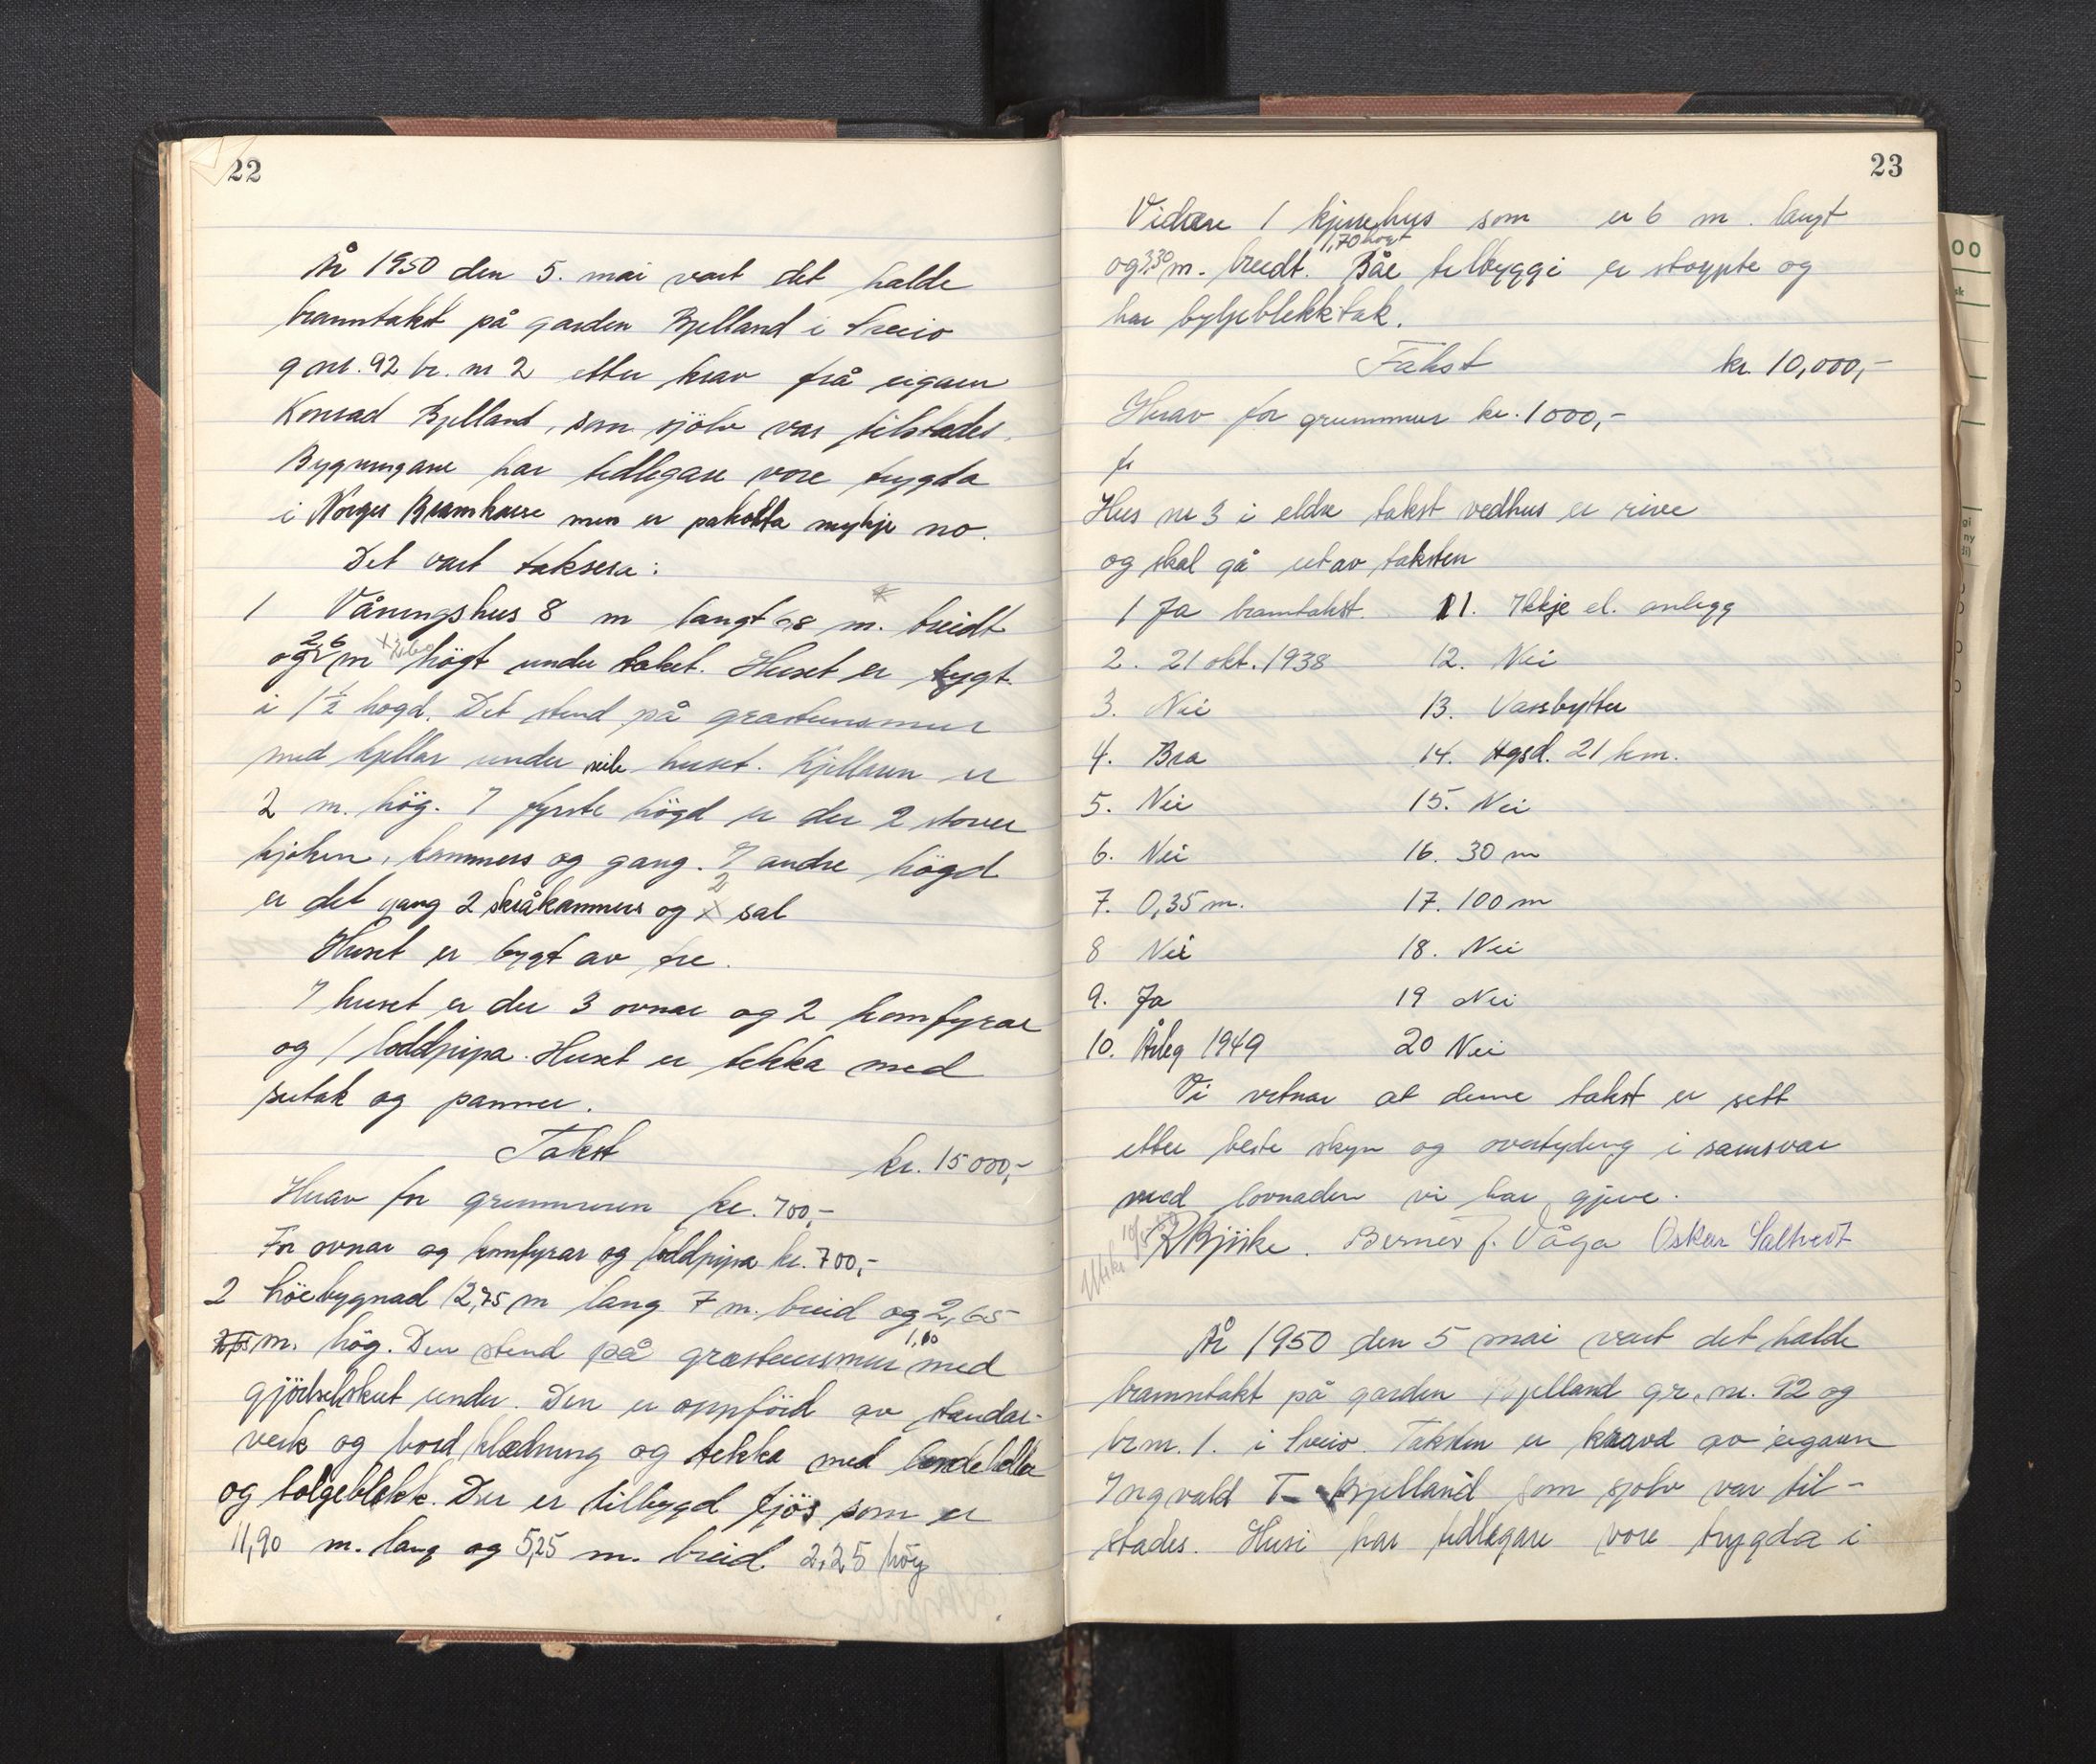 22
År 1950 den 5. mai vart det halde
branntakst på garden Bjelland i Sveio
g nr. 92 br. nr 2 etter krav frå eigaren
Konrad Bjelland, som sjölv var tilstades.
Bygningane har tidlegare vore trygda
i Norges Brannkasse men er påkosta mykje no.
Det vart taksera:
1 Våningshus 8 m langt 6,8 m. breidt
og 2,6 m högt under taket. Huset er bygt
i 1½ högd. Det stend på gråsteinsmur
med kjellar under heile huset. Kjellaren er
2 m. hög. I fyrste högd er der 2 stover
kjöken, kammers og gang. I andre högd
er det gang 2 skråkammers og 2 sal
Huset er bygt av tre.
I huset er der 3 ovnar og 2 komfyrar
og 1 loddpipa. Huset er tekka med
sutak og panner.
Takst kr. 15 000,-
Herav for grunnmuren kr. 700,-
For ovnar og komfyrar og loddpipa kr. 700,-
2 höebygnad 12,75 m lang 7 m. breid og 2,65
m. hög. Den stend på gråsteinsmur 1,60 med
gjödselskut under. Den er oppförd av standar-
verk og bord klædning og tekka med
og bölgeblekk. Der er tilbygd fjös som er
11,90 m. lang og 5,25 m. breid. 2,25 høg
23
Vidare 1 kjørehus som er 6 m. langt
og 3,30 m. breidt. 1,70 högt Båe tilbyggi er støypte og
har byljeblekktak.
Takst kr. 10,000,-
Herav for grunnmur kr. 1000,-
Hus nr 3 i eldre takst vedhus er rive
og skal gå utav taksten
1 Ja branntakst. 11. Ikkje el. anlegg
2. 21 okt. 1938 12. Nei
3. Nei 13. Vassbytter
4. Bra 14. Hgsd. 21 km.
5. Nei 15. Nei
6. Nei 16. 30 m
7. 0,35 m. 17. 100 m
8 Nei 18. Nei
9. Ja 19 Nei
10. Årleg 1949 20 Nei
Vi vitnar at denne takst er sett
etter beste skyn og overtyding i samsvar
med lovnaden vi har gjeve.
Bjørke. Berner J. Våga Oskar Saltvedt
År 1950 den 5 mai vart det halde
branntakt på garden Bjelland gr. nr. 92 og
br nr. 1. i Sveio. Taksten er kravd av eigaren
Ingvald T. Bjelland som sjølv var til-
stades. Husi har tidlegare vore trygda i